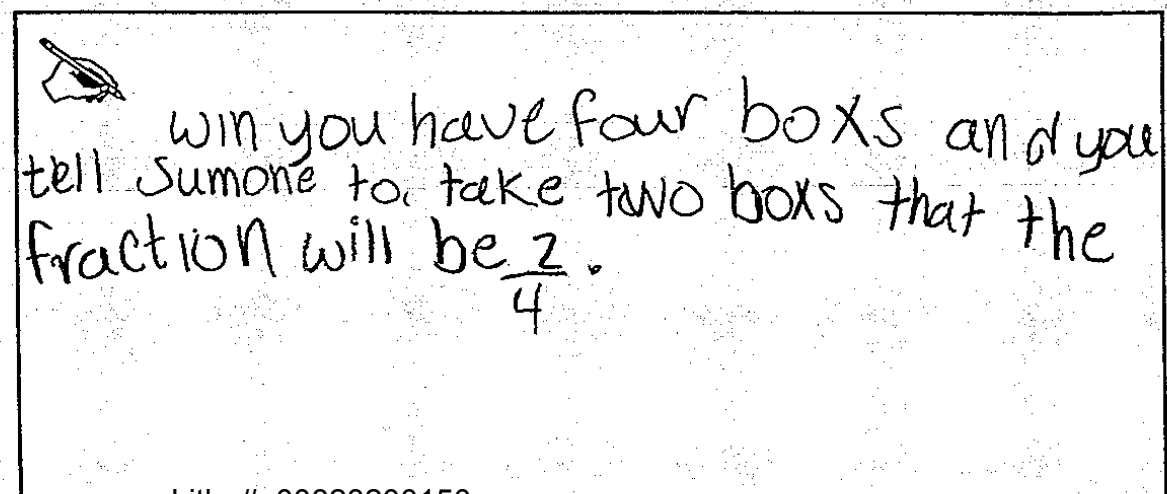 win you have four boxs and you
tell sumone to take two boxs that the
fraction will be 2/4.